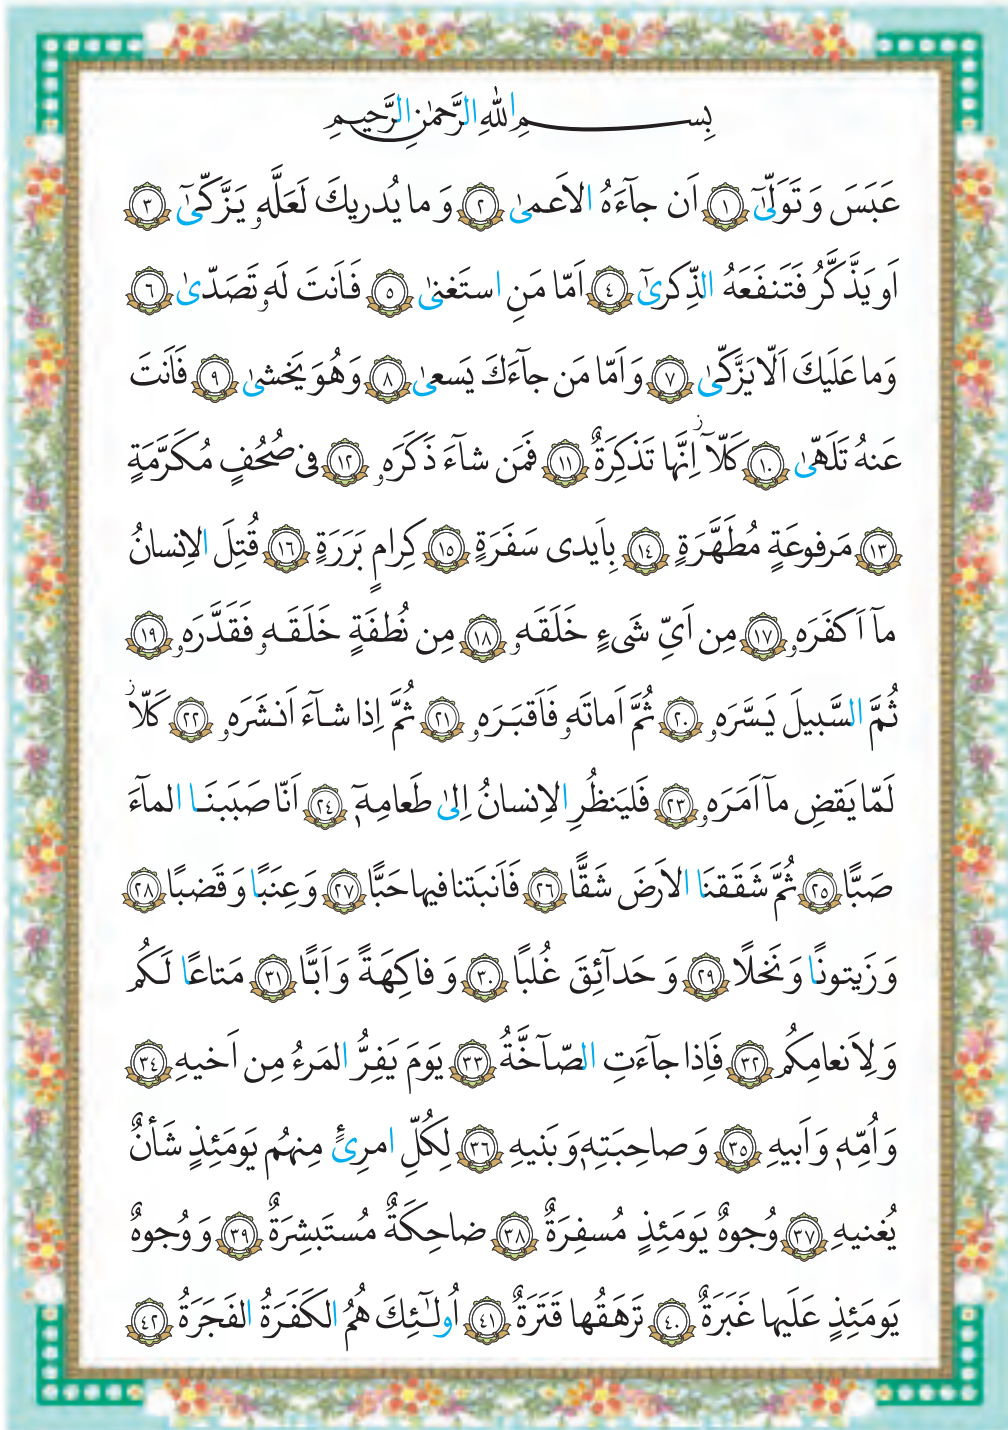 بِسمِ اللهِ الرَّحمٰنِ الرَّحيمِ
عَبَسَ وَ تَوَلّىٰٓ ﴿١﴾ اَن جآءَهُ الاَعمىٰ ﴿٢﴾ وَ ما يُدريكَ لَعَلَّهٗ يَزَّكّىٰٓ ﴿٣﴾
اَو يَذَّكَّرُ فَتَنفَعَهُ الذِّكرىٰٓ ﴿٤﴾ اَمّا مَنِ استَغنىٰ ﴿٥﴾ فَاَنتَ لَهٗ تَصَدّىٰ ﴿٦﴾
وَما عَلَيكَ اَلّا يَزَّكّىٰ ﴿٧﴾ وَ اَمّا مَن جآءَكَ يَسعىٰ ﴿٨﴾ وَ هُوَ يَخشىٰ ﴿٩﴾ فَاَنتَ
عَنهُ تَلَهّىٰ ﴿١٠﴾ كَلّآ اِنَّها تَذكِرَةٌ ﴿١١﴾ فَمَن شآءَ ذَكَرَهٗ ﴿١٢﴾ فى صُحُفٍ مُكَرَّمَةٍ
﴿١٣﴾ مَرفوعَةٍ مُطَهَّرَةٍ ﴿١٤﴾ بِاَيدى سَفَرَةٍ ﴿١٥﴾ كِرامٍ بَرَرَةٍ ﴿١٦﴾ قُتِلَ الاِنسانُ
مآ اَكفَرَهٗ ﴿١٧﴾ مِن اَىِّ شَىءٍ خَلَقَهٗ ﴿١٨﴾ مِن نُطفَةٍ خَلَقَهٗ فَقَدَّرَهٗ ﴿١٩﴾
ثُمَّ السَّبيلَ يَسَّرَهٗ ﴿٢٠﴾ ثُمَّ اَماتَهٗ فَاَقبَرَهٗ ﴿٢١﴾ ثُمَّ اِذا شآءَ اَنشَرَهٗ ﴿٢٢﴾ كَلّا
لَمّا يَقضِ مآ اَمَرَهٗ ﴿٢٣﴾ فَليَنظُرِ الاِنسانُ اِلىٰ طَعامِهٖٓ ﴿٢٤﴾ اَنّا صَبَبنَا المآءَ
صَبًّا ﴿٢٥﴾ ثُمَّ شَقَقنَا الاَرضَ شَقًّا ﴿٢٦﴾ فَاَنبَتنا فيها حَبًّا ﴿٢٧﴾ وَ عِنَبًا وَ قَضبًا ﴿٢٨﴾
وَ زَيتونًا وَ نَخلًا ﴿٢٩﴾ وَ حَدآئِقَ غُلبًا ﴿٣٠﴾ وَ فاكِهَةً وَ اَبًّا ﴿٣١﴾ مَتاعًا لَكُم
وَ لِاَنعامِكُم ﴿٣٢﴾ فَاِذا جآءَتِ الصّآخَّةُ ﴿٣٣﴾ يَومَ يَفِرُّ المَرءُ مِن اَخيهِ ﴿٣٤﴾
وَ اُمِّهٖ وَ اَبيهِ ﴿٣٥﴾ وَ صاحِبَتِهٖ وَ بَنيهِ ﴿٣٦﴾ لِكُلِّ امرِئٍ مِنهُم يَومَئِذٍ شَأنٌ
يُغنيهِ ﴿٣٧﴾ وُجوهٌ يَومَئِذٍ مُسفِرَةٌ ﴿٣٨﴾ ضاحِكَةٌ مُستَبشِرَةٌ ﴿٣٩﴾ وَ وُجوهٌ
يَومَئِذٍ عَلَيها غَبَرَةٌ ﴿٤٠﴾ تَرهَقُها قَتَرَةٌ ﴿٤١﴾ اُولٰٓئِكَ هُمُ الكَفَرَةُ الفَجَرَةُ ﴿٤٢﴾